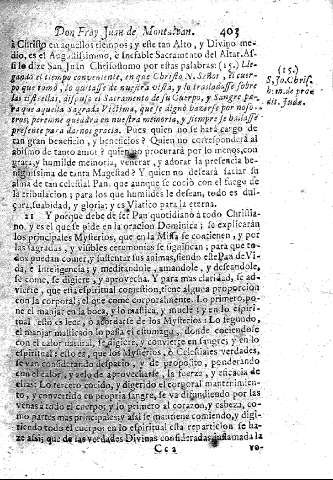 Don Fray Juan de Montalvan. 403
à Christo en aquellos tiempos; y este tan Alto, y Divino me-
dio, es el Augustissimo, è Inefable Sacramento del Altar. Assi
lo dize San Juan Chrisostomo por estas palabras: (15.) Lle-
gando el tiempo conveniente, en que Christo N. Señor, el cuer-
po que tomò, lo quitasse de nuestra vista, y lo trasladasse sobre
las Estrellas, dispuso el Sacramento de su Cuerpo, y Sangre pa-
ra que aquella Sagrada Victima, que se dignò hazerse por noso-
tros, perenne quedára en nuestra memoria, y siempre se hallasse
presente para darnos gracia. Pues quien no se harà cargo de
tan gran beneficio, y beneficios? Quien no corresponderà al
abismo de tanto amor? quien no procurarà por lo menos, con
grata, y humilde memoria, venerar, y adorar la presencia be-
nignissima de tanta Magestad? Y quien no desearà saciar su
alma de tan celestial Pan, que aunque se cociò con el fuego de
la tribulacion; para los que humildes le desean, todo es dul-
çura, suabidad, y gloria; y es Viatico para la eterna.
(15.)
S. Jo. Chris.
hom. de pro
dit. Judæ.
21 Y porque debe de ser Pan quotidiano à todo Christia-
no, y es el que se pide en la oracion Dominica; se explicaràn
los principales Mysterios, que en la Missa se contienen, y por
las sagradas, y visibles ceremonias se significan; para que to-
dos puedan comer, y sustentar sus animas, siendo este Pan de Vi-
da, è Inteligencia; y meditandole, amandole, y deseandole,
se come, se digiere, y aprovecha. Y para mas claridad, se ad-
vierte, que esta espiritual comestion, tiene alguna proporcion
con la corporal; el que come corporalmente. Lo primero, po-
ne el manjar en la boca, y lo mastica, y muele; y en lo espiri-
tual esto es leer, ò acordarse de los Mysterios: Lo segundo,
el manjar masticado lo passa el estomago, donde cociendose
con el calor natural, se digiere, y convierte en sangre; y en lo
espiritual: esto es, que los Mysterios, ò Celestiales verdades,
se van considerando despacio, y de proposito, ponderando
con el calor, y zelo de aprovecharse, la fuerza, y eficacia de
ellas: Lo tercero cocido, y digerido el corporal mantenimien-
to, y convertido en propria sangre, se va difundiendo por las
venas à todo el cuerpo; y lo primero al corazon, y cabeza, co-
mo partes mas principales; y assi se mantiene comiendo, y digi-
riendo todo el cuerpo: en lo espiritual esta reparticion se ha-
ze assi; que de las verdades Divinas consideradas inflamada la
Cc2 vo-